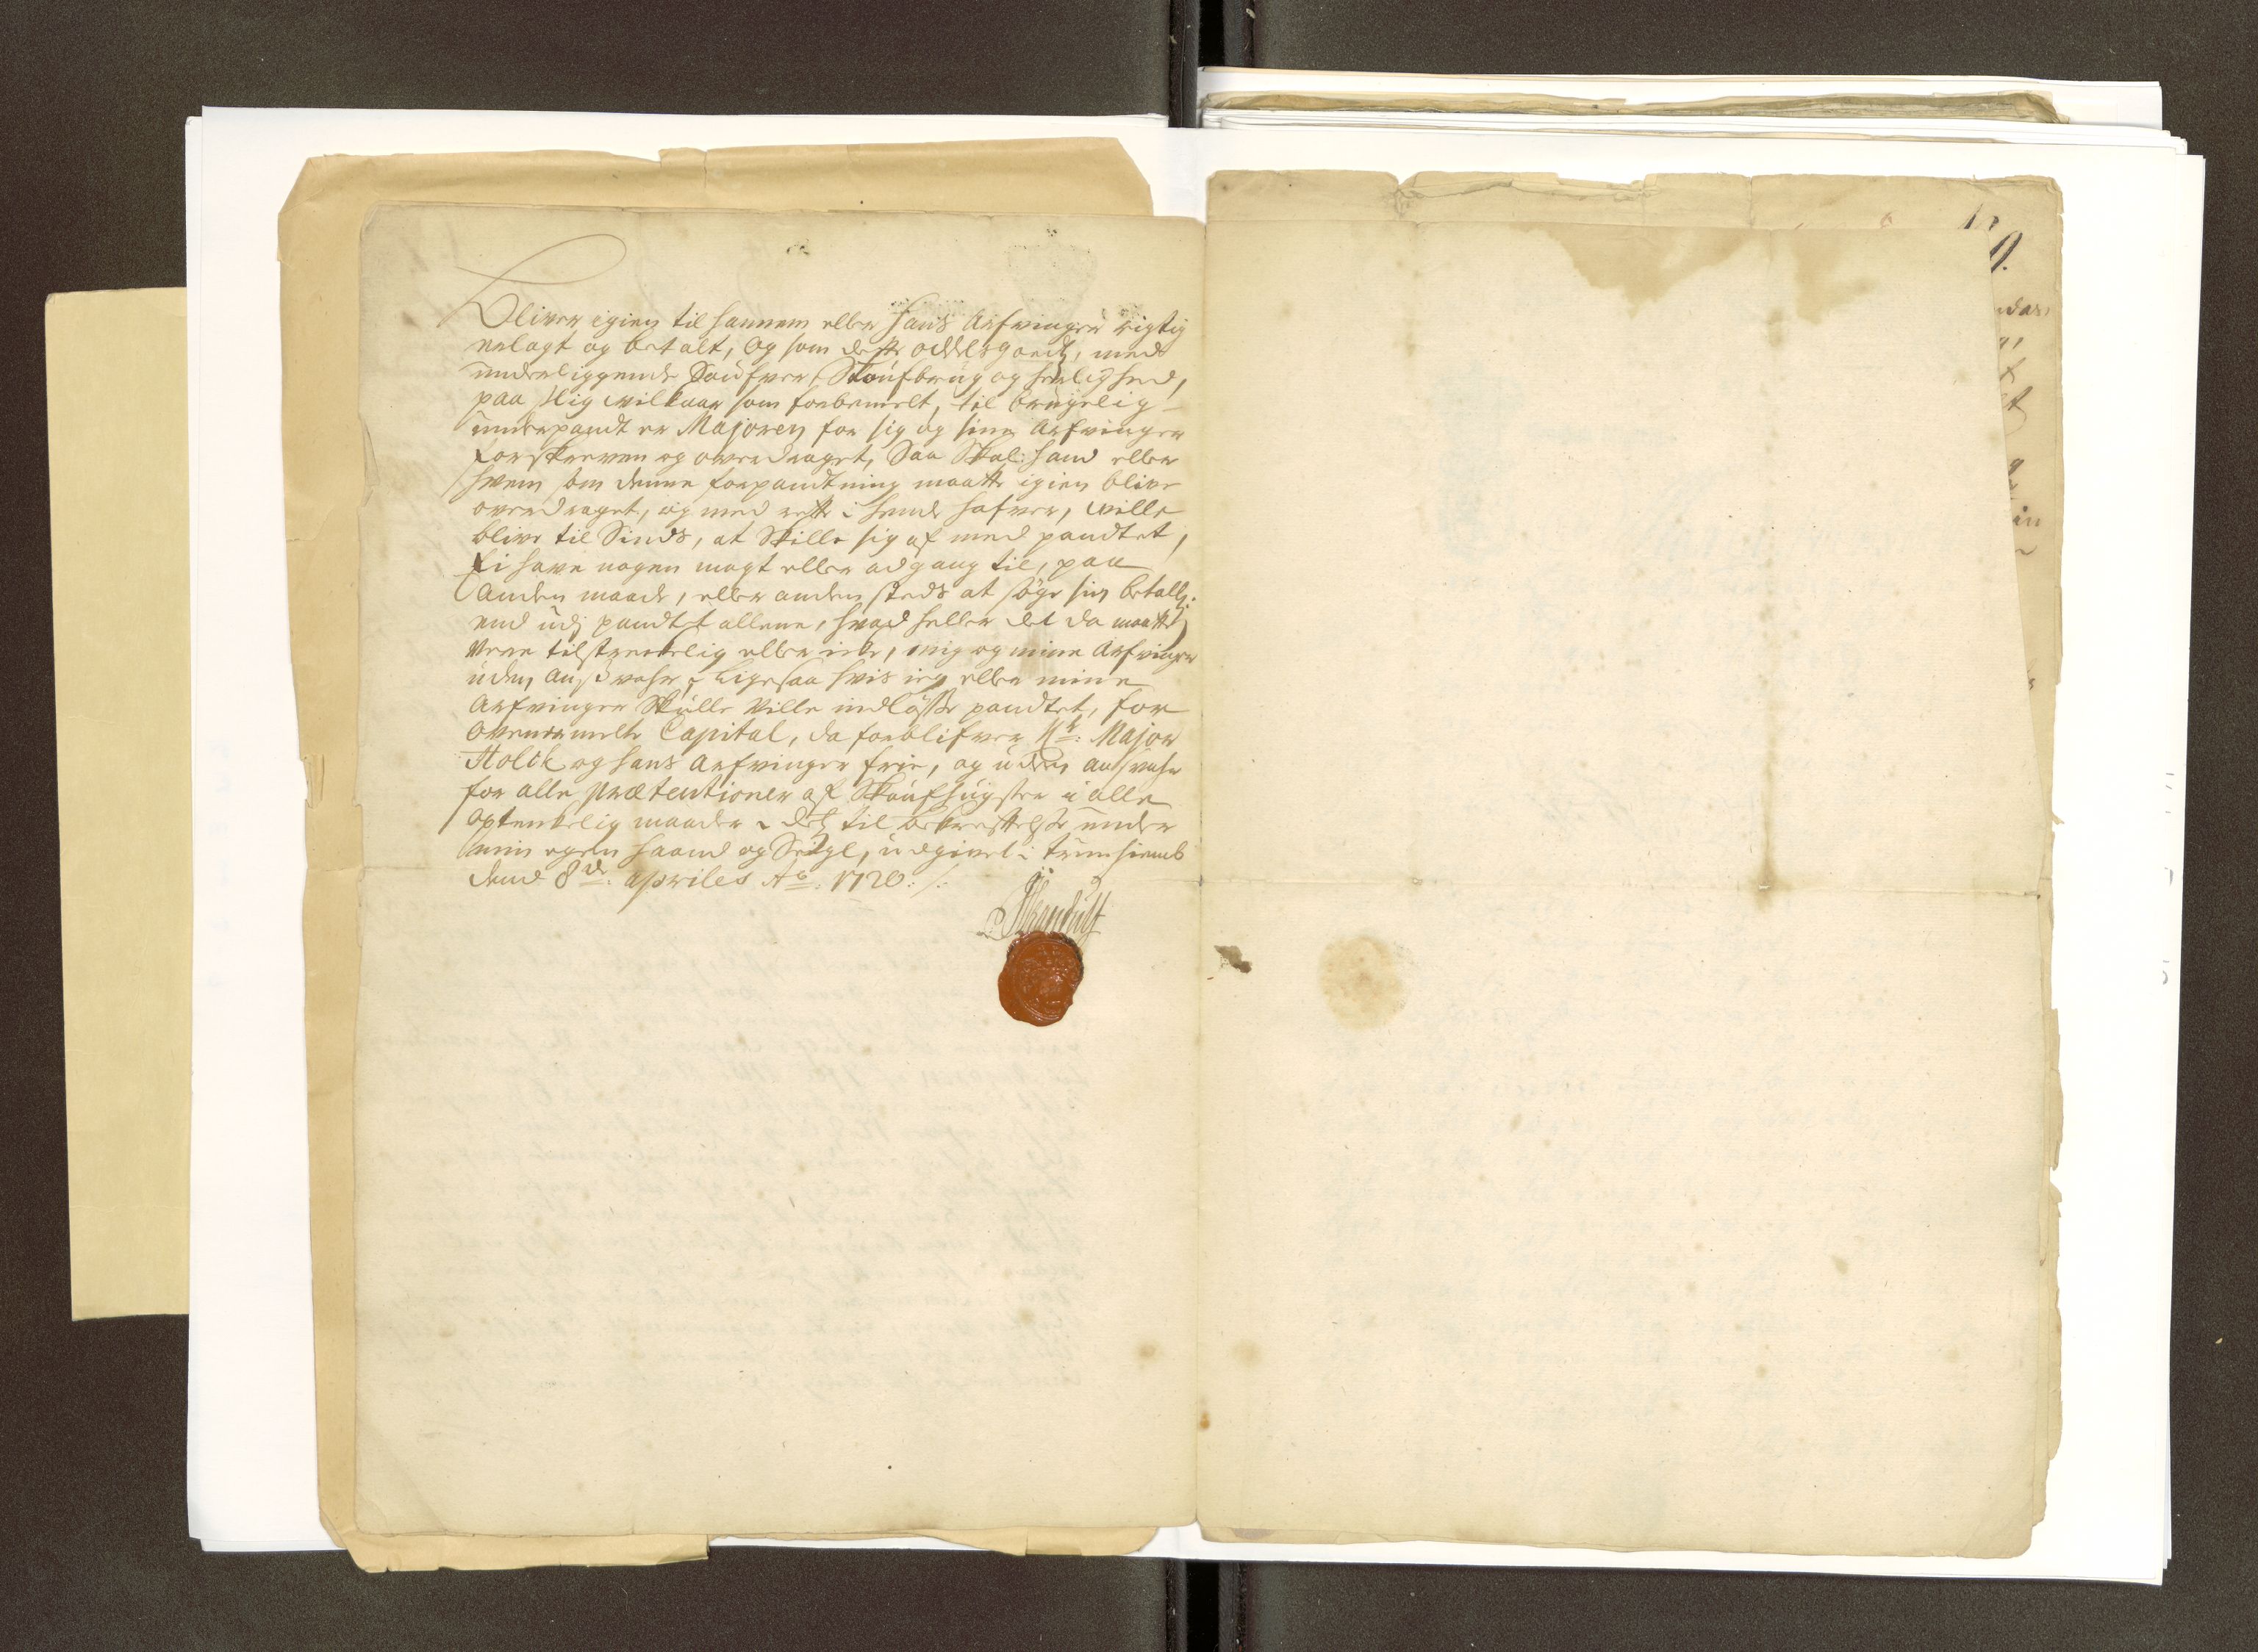 Bliver igien til hannem eller hans Arfvinger rigtig
erlagt og betalt, og som dette oddelsgoeds, med
underliggende Saufver, Skoufbrug og herlighed,
paa slig wilkaar som forbemelt, til brugelig
underpandt er Majoren for sig og sine Arfvinger
forskreven og overdraget, Saa Skal: hand eller
hvem som denne forpandtning maatte igien blive
overdraget, og med rette i hende hafver, wille
blive til Sinds, at Skille sig af med pandtet,
Ei have nogen magt eller adgang til, paa
Anden maade, eller anden steds at søge sin betall:
end udj pandtet allene, hvad heller det da maatte
være tilstrenkelig eller icke, mig og mine Arfvinger
uden Ansvahr, Ligesaa hvis ieg eller mine
Arfvinger Skulle Ville indløsse pandtet, for
Ovenermelte Capital, da forblifver Hr: Major
Holck og hans Arfvinger frie, og uden ansvahr
for alle Prætentioner af Skoufhugster i alle
optenkelig maader. Dets til bekreftelse under
min egen haand og Seigl, udgivet i
dend 8de: apriles Ao: 1720:/: